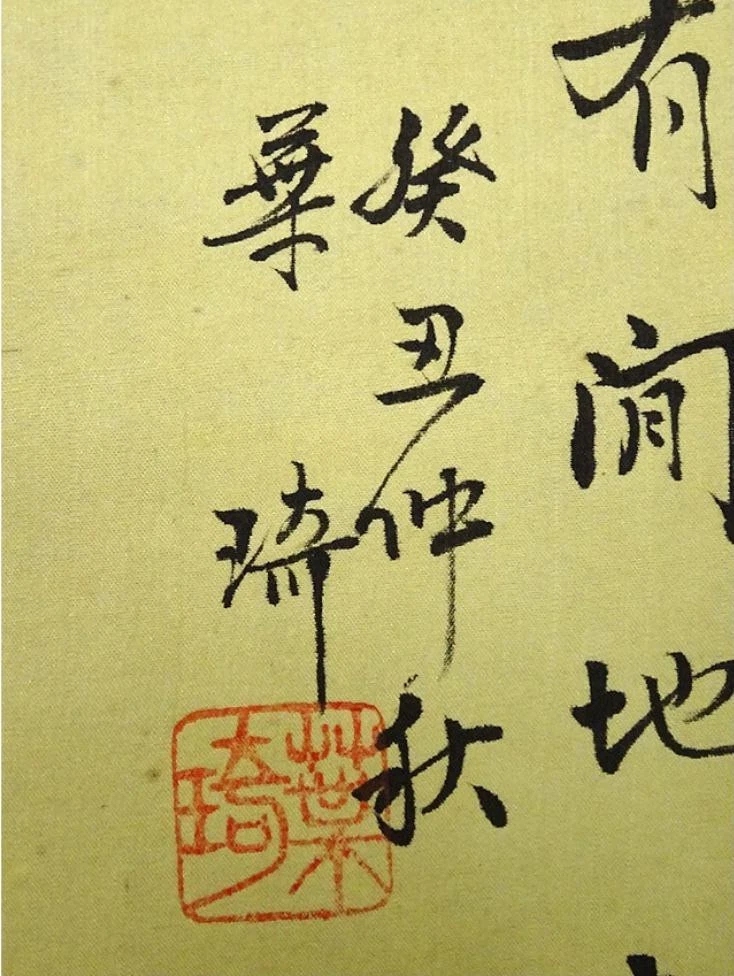 有閒地
癸丑仲秋
葉琦
葉琦